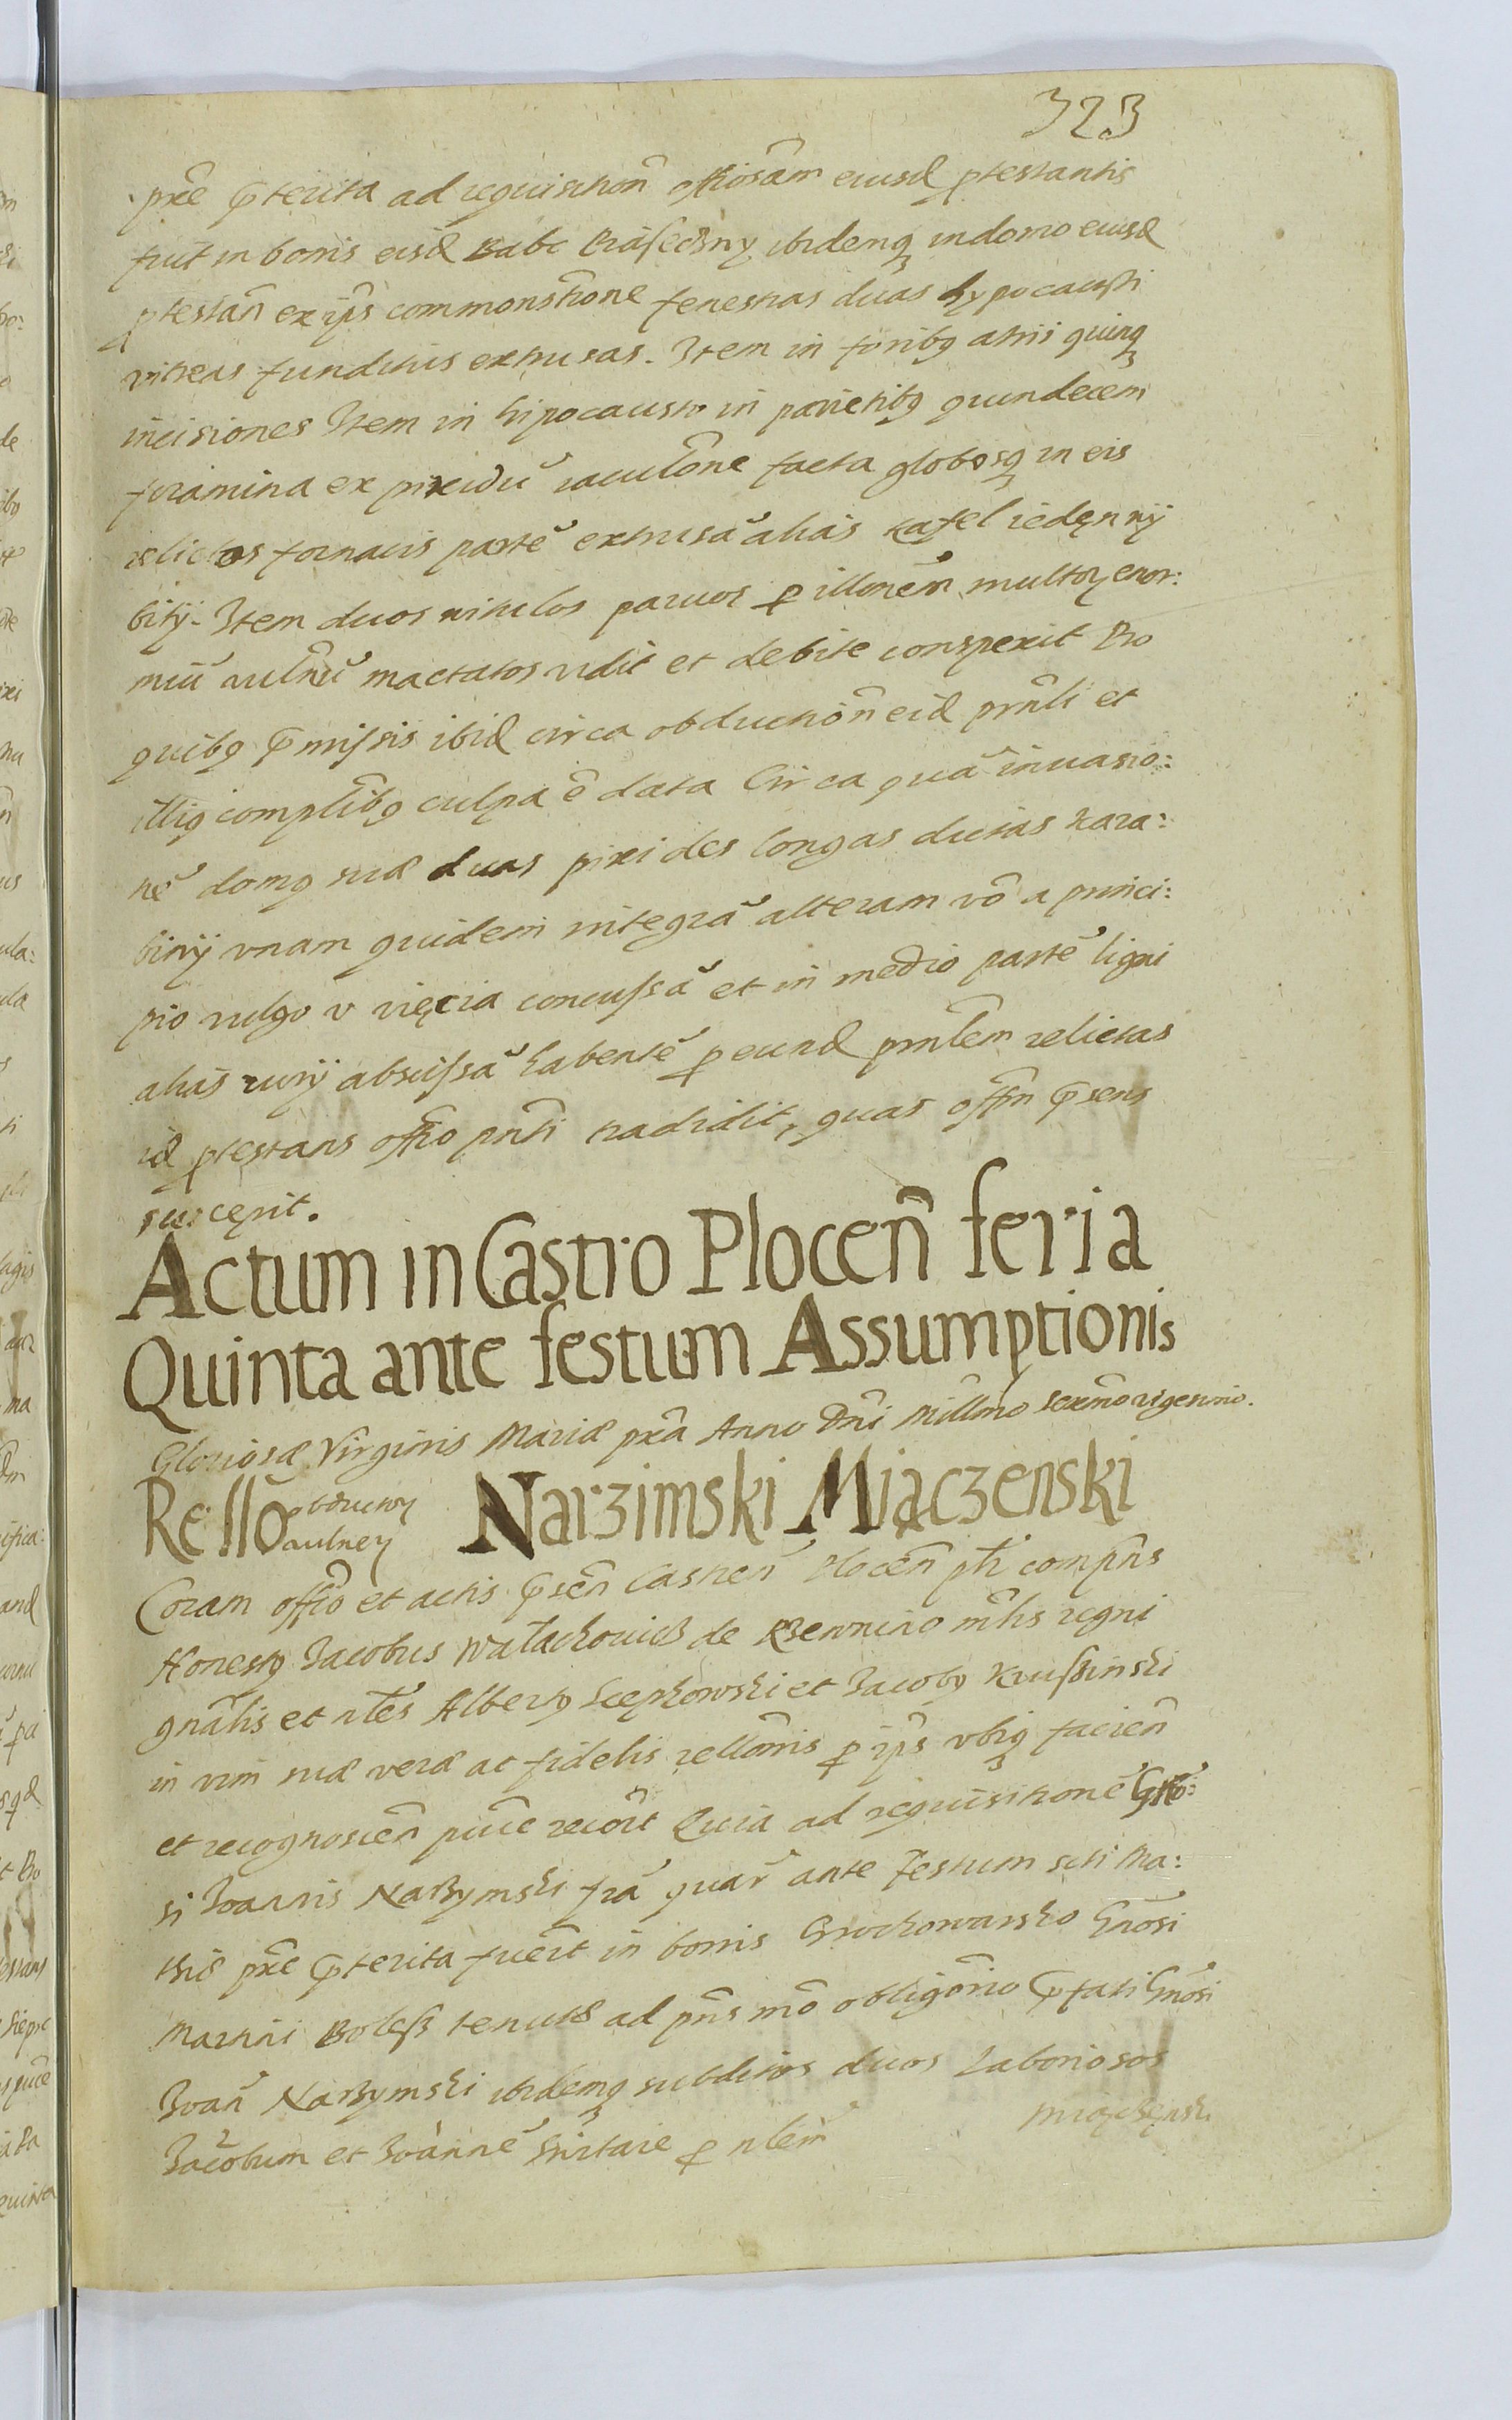 323
pxe p̃terita ad requisitioñ offiosam eiusd ptestantis
fuit in bonis eisd Babc ibidemq in domo eiusd
ptestañ ex ips commonstione fenestras duas hypocausti
vitreas funditus extrusas. Item in foribq atrii quinq
incisiones Item in hipocausto in parietibq quindecem
foramina ex pixidũ iaculone facta globosq in eis
relictos fornacis partẽ extrusã alias kafel iedęn wy
bity. Item duos vitulos paruos p illoñem multor enor:
miũ vulnerũ mactatos vidit et debite conspexit Pro
quibq p̃missis ibid circa obductioñ eid prnli et
illiq complibq culpa ẽ data Circa quã inuasio:
nẽ domq suæ duas pixides longas dictas kara:
biny vnam quidem integrã alteram vo a princi:
pio vulgo v vięcia concussã et in medio partẽ ligni
alias rury abscissã habentẽ p eund prnlem relictas
id ptestans offio pnti tradidit, quas offm p̃sens
suscepit.
Actum in Castro Plocen̄ feria
Quinta ante festum Assumptionis
Gloriosæ Virginis Mariæ pxa Anno Dni Millmo sexmo vigesimo.
Rello obductoy vulney Narzimski Miączenski
Coram offio et actis p̃señ Castreñ Ploceñ pti compns
Honestq Jacobus Wałachowicz de Rzewnino mlis regni
gnalis et nles Albertq Scepkowski et Jacobq Krussinski
in vim suæ veræ ac fidelis rellonis p ips vbiq facieñ
et recognosceñ puce recort Quia ad requisitionẽ Gño:
si Joannis Narzymski fra quar ante Festum scti Ma:
thiæ pxe p̃terita fuert in bonis Grochowarsko Gnosi
Martini Bolesz tenutæ ad pns mo obligorio p̃fati Gnosi
Joañ Narzymski ibidemq subditos duos Laboriosos
Jacobum et Joannẽ p nlem
Miączęnski